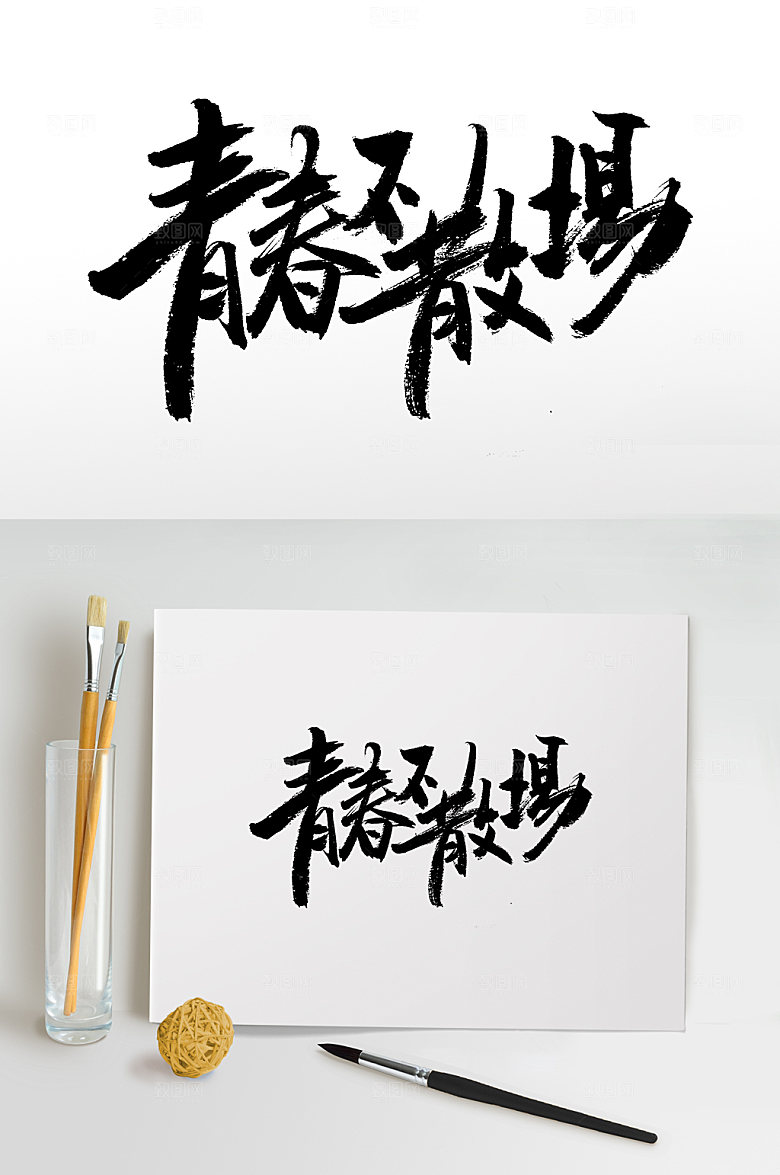 青春不散場
青春不散場